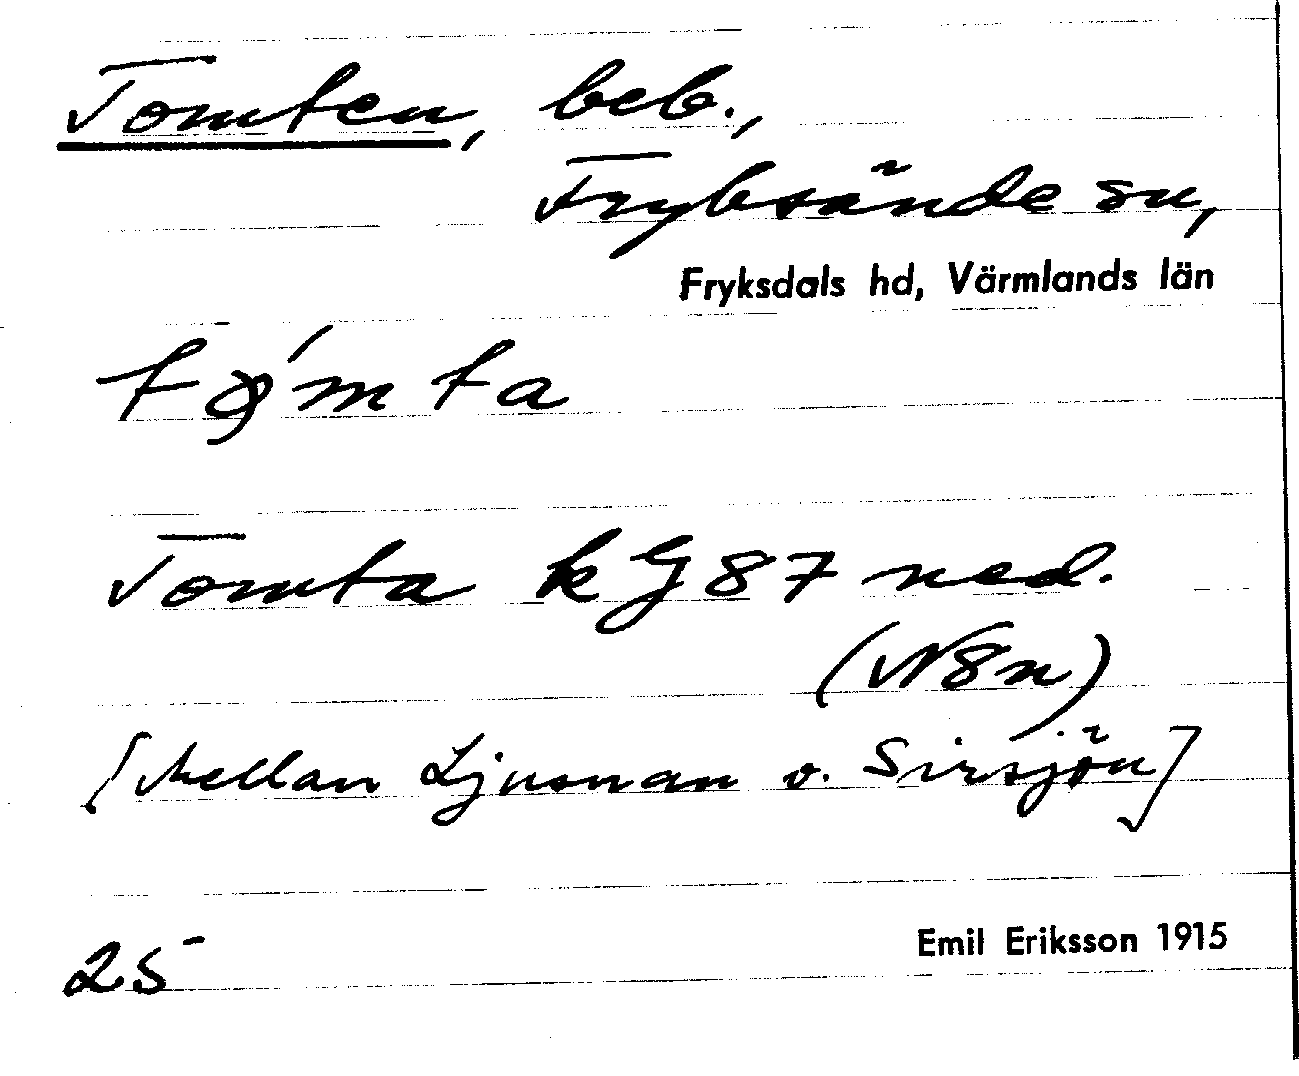 Tomten, beb.,
Fryksände sn,
Fryksdals hd, Värmlands län
Tomta kG87 ned.
(N8n)
[Mellan Ljusnan o. Sirsjön]
25
Emil Eriksson 1915